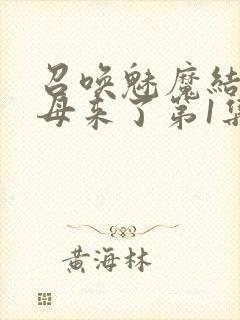 召唤魅魔结
母来了第1集
黄海林